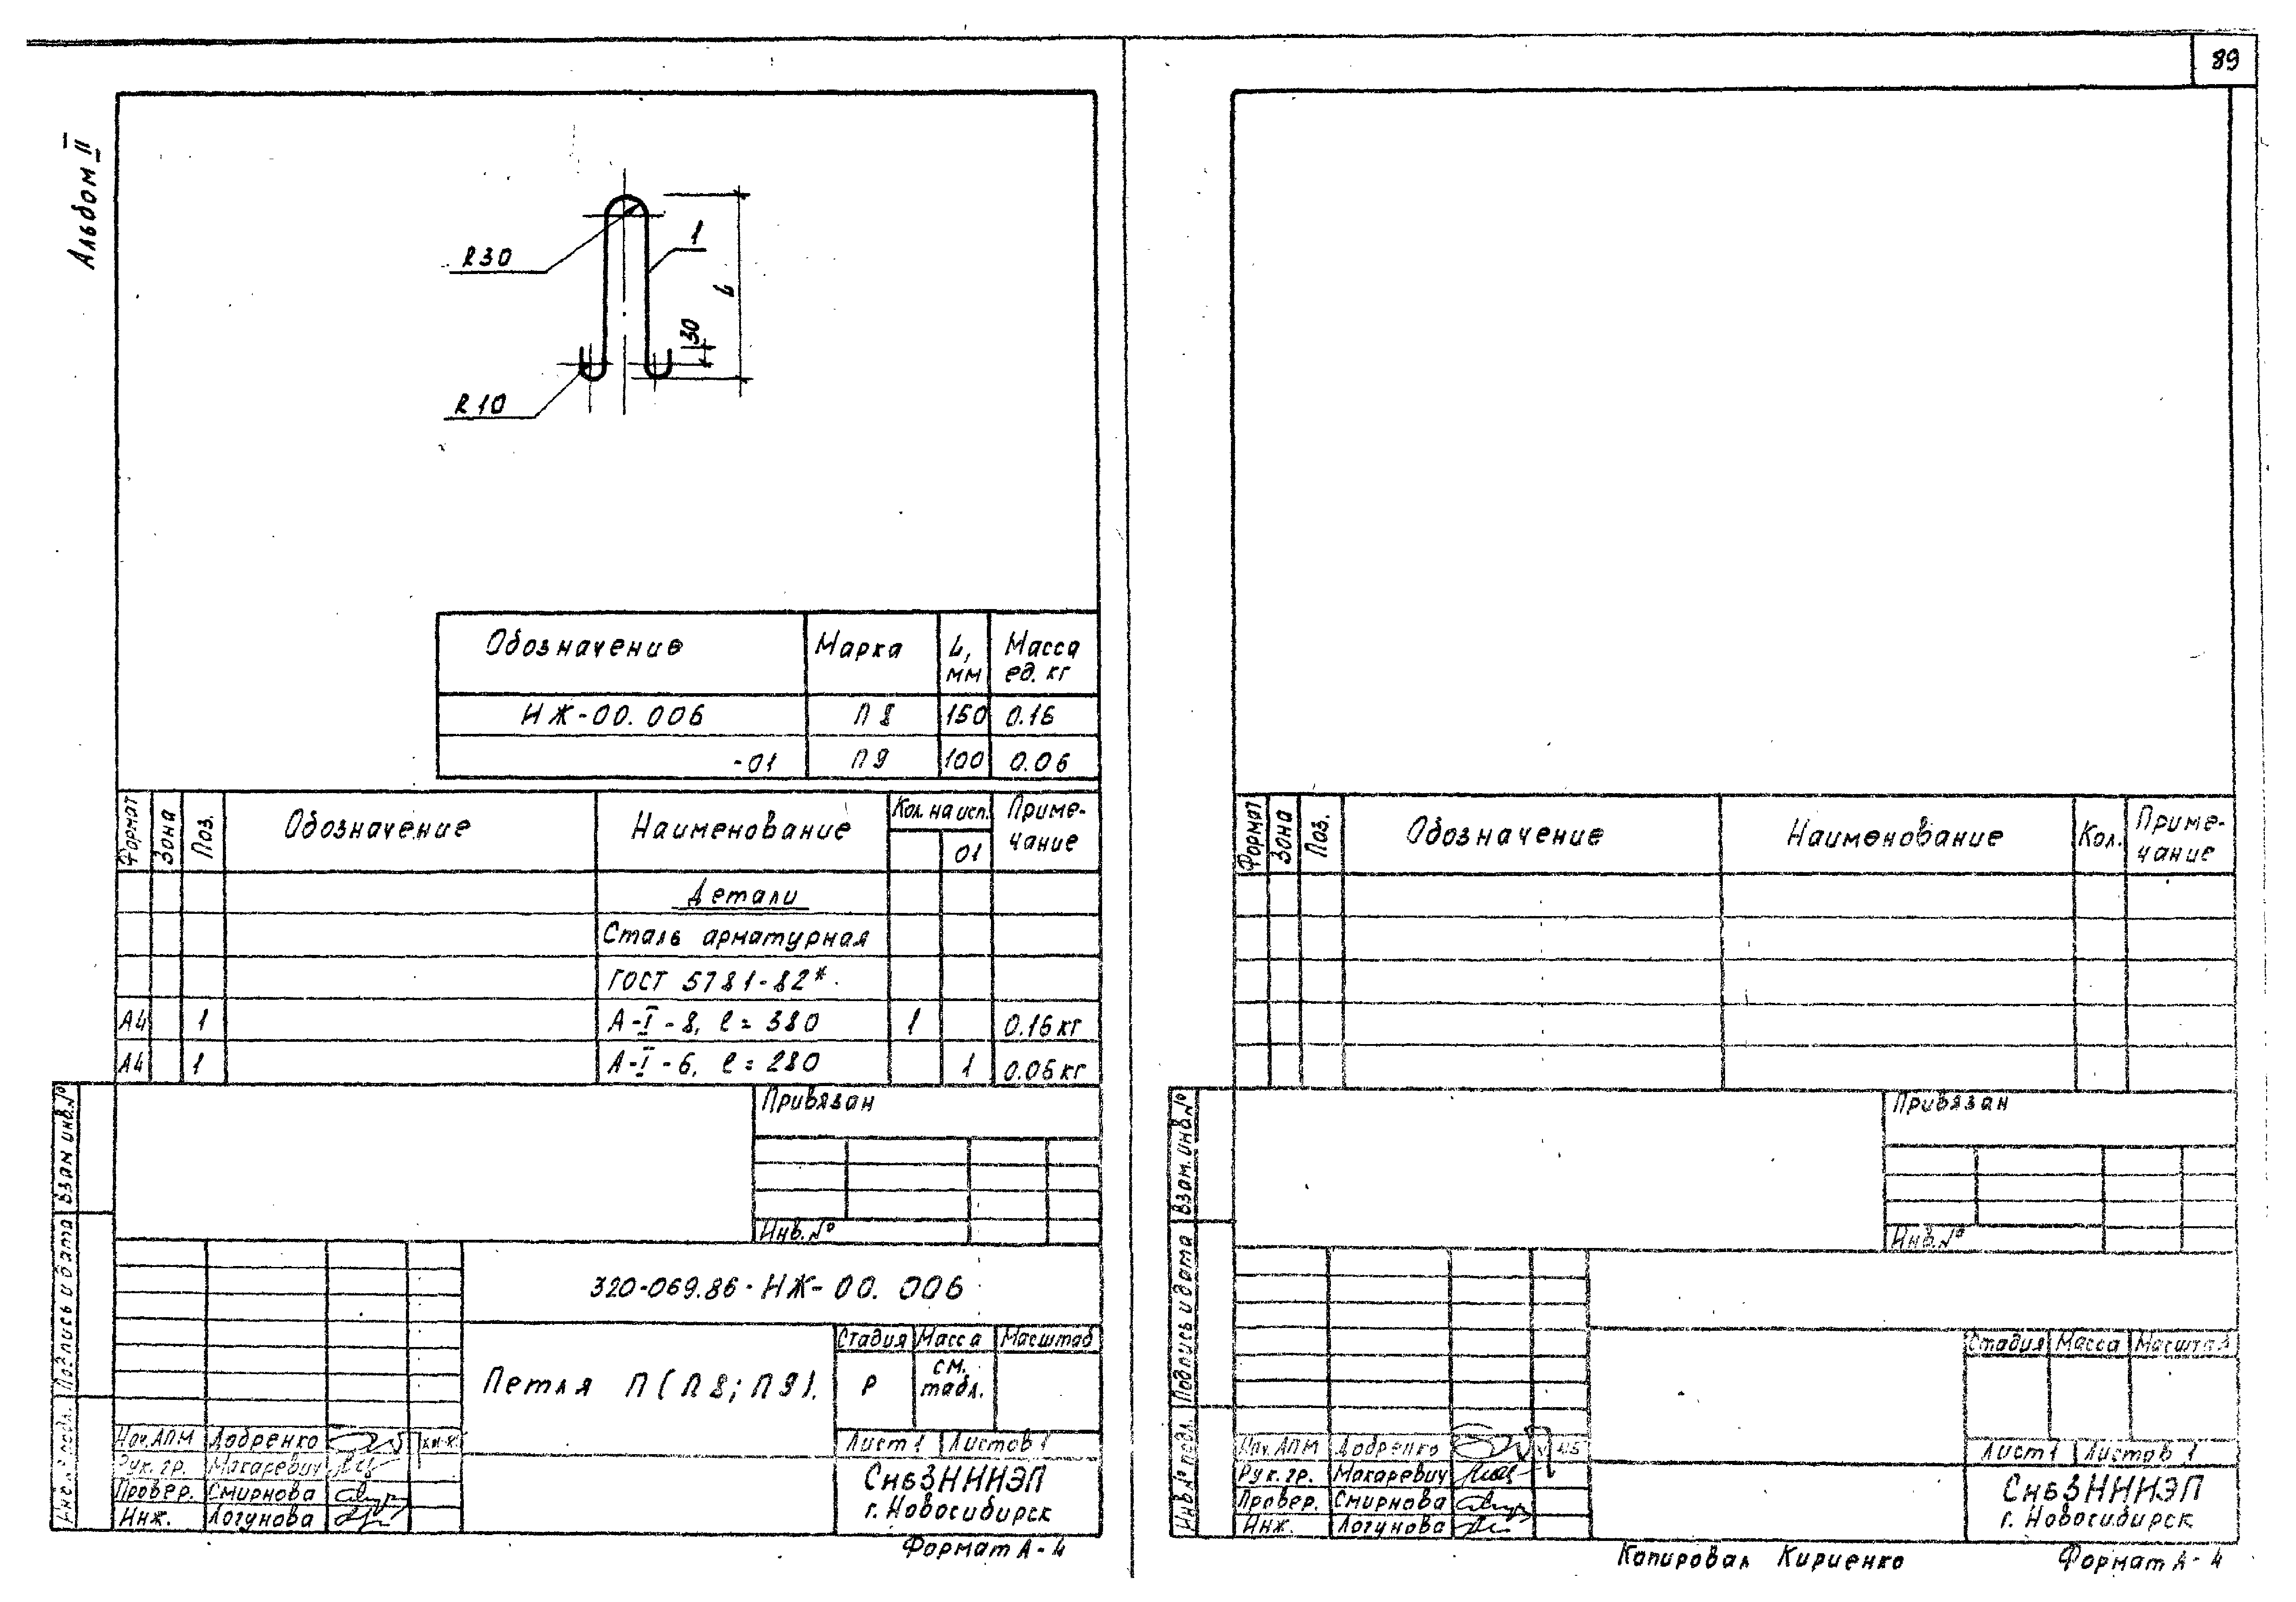 89
Альбом II
R30
1
L
30
R10
Обозначение Марка L, мм Масса ед. кг
НЖ-00.006 П8 150 0.16
-01 П9 100 0.06
Формат Зона Поз. Обозначение Наименование Кол. на исп. Приме-
01 чание
Детали
Сталь арматурная
ГОСТ 5781-82*
А4 1 А-I-8, l=380 1 0.16кг
А4 1 А-I-6, l=280 1 0.06кг
Привязан
Инв.№
Взам инв.№
Подпись и дата
Инв.№ подл.
320-069.86-НЖ-00.006
Петля П(П8;П9).
Стадия Масса Масштаб
Р см. табл.
Лист 1 Листов 1
Нач.АПМ Добренко
Рук.гр. Макаревич
Провер. Смирнова
Инж. Логунова
СибЗНИИЭП
г. Новосибирск
Формат А-4
Формат Зона Поз. Обозначение Наименование Кол. Приме-
чание
Привязан
Инв.№
Взам.инв.№
Подпись и дата
Инв.№ подл.
Стадия Масса Масштаб
Лист 1 Листов 1
Нач.АПМ Добренко
Рук.гр. Макаревич
Провер. Смирнова
Инж. Логунова
СибЗНИИЭП
г. Новосибирск
Копировал Кириенко Формат А-4